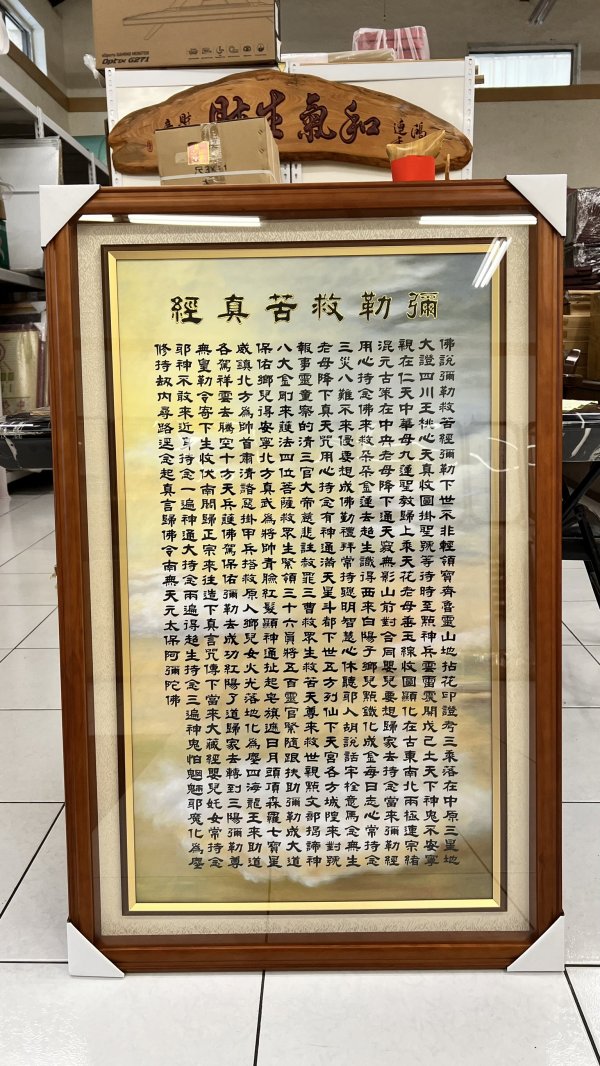 Optix G271
和氣生財
彌勒救苦真經
佛說彌勒救苦經彌勒下世不非輕領寶齊魯靈山地拈花印證考三乘落在中原三星地
大證四川王桃心天真收圓掛聖號等待時至點神兵雲雷震開戊己土天下神鬼不安寧
親在仁天中華母九蓮聖教歸上乘天花老母垂玉線收圓顯化在古東南北兩極連宗緒
混元古策在中央老母降下通天竅無影山前對合同嬰兒要想歸家去持念當來彌勒經
用心持念佛來救朵朵金蓮去超生識得西來白陽子鄉兒點鐵化成金每日志心常持念
三災八難不來侵要想成佛勤禮拜常持聰明智慧心休聽耶人胡說話牢栓意馬念無生
老母降下真天咒用心持念有神通滿天星斗都下世五方列仙下天宮各方城隍來對號
報事靈童察的清三官大帝慈悲註救罪三曹救眾生救苦天尊來救世親點文部揭諦神
八大金剛來護法四位菩薩救眾生緊領三十六員將五百靈官緊隨跟扶助彌勒成大道
保佑鄉兒得安寧北方真武為將帥青臉紅髮顯神通扯起皂旗遮日月頭頂森羅七寶星
威鎮北方為帥首肅清諸惡掛甲兵搭救原人鄉兒女火光落地化為塵四海龍王來助道
各駕祥雲去騰空十方天兵護佛駕保佑彌勒去成功紅陽了道歸家去轉到三陽彌勒尊
無皇勒令寄下生收伏南閻歸正宗來往造下真言咒傳下當來大藏經嬰兒奼女常持念
耶神不敢來近身持念一遍神通大持念兩遍得超生持念三遍神鬼怕魍魎耶魔化為塵
修持劫內尋路逕念起真言歸佛令南無天元太保阿彌陀佛